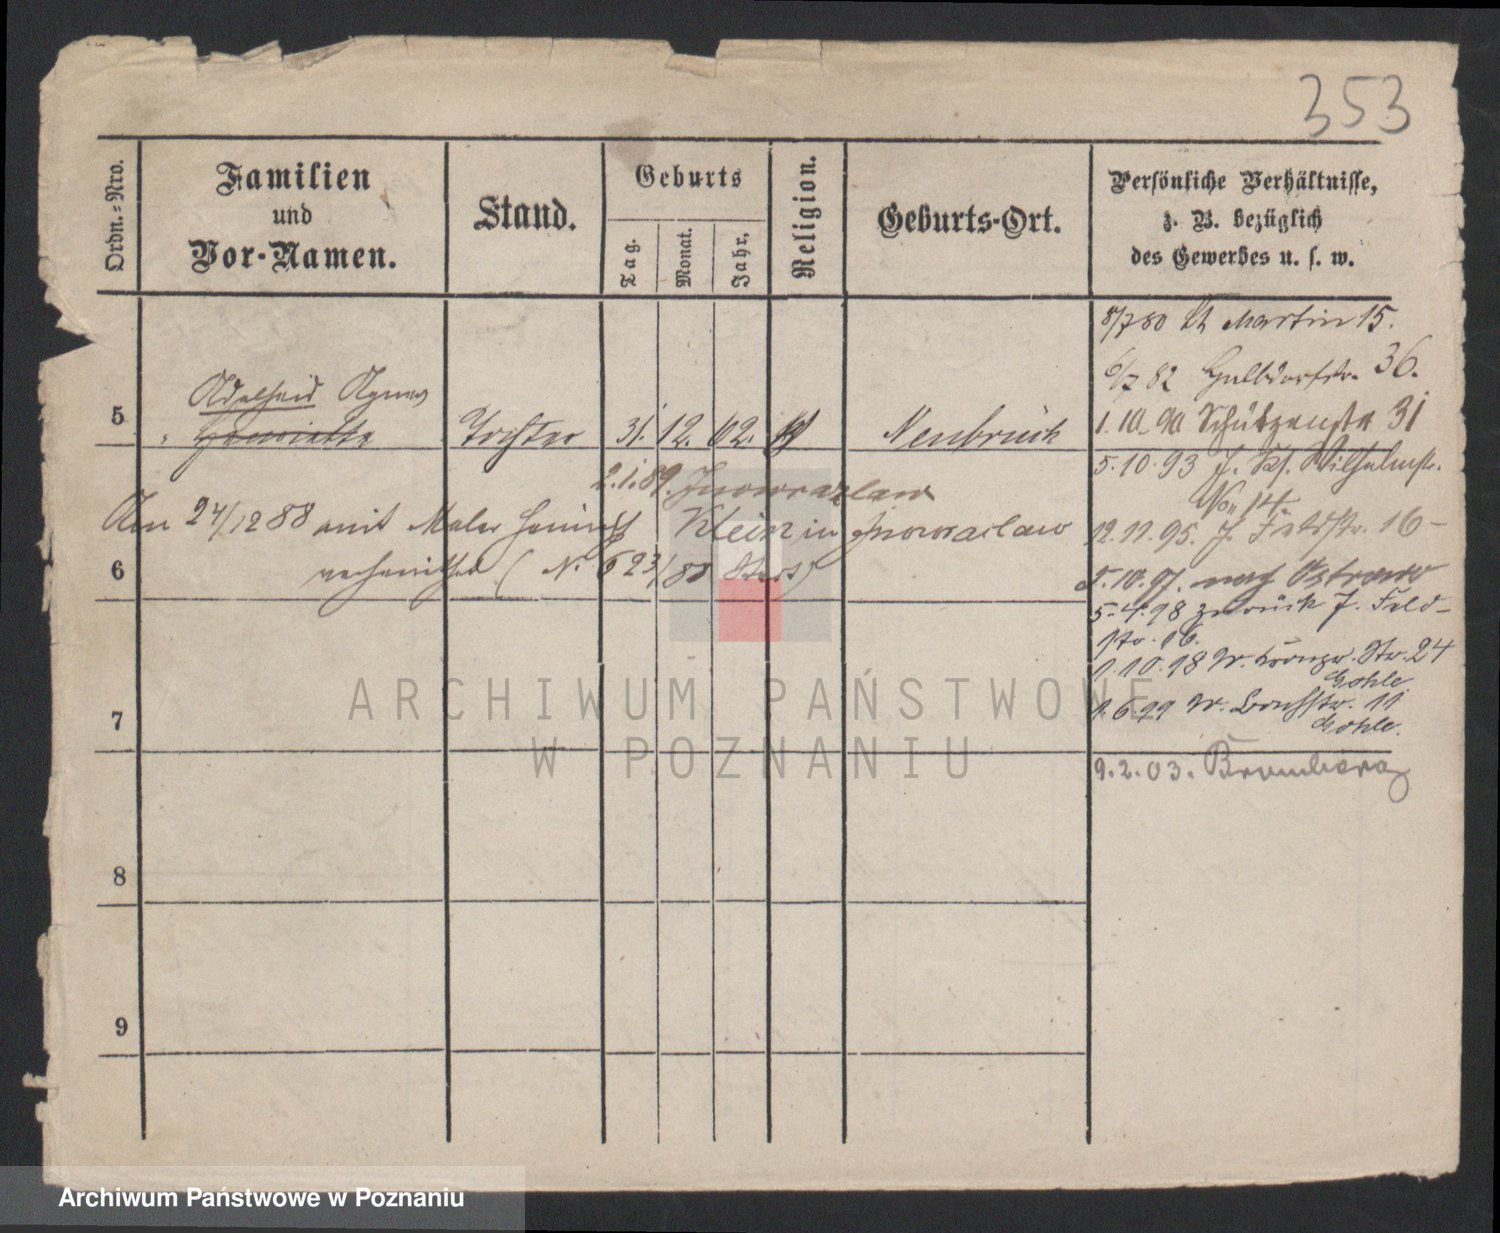 353
Ordn.-Nro.
Familien
und
Vor-Namen.
Stand.
Geburts
Tag.
Monat.
Jahr.
Religion.
Geburts-Ort.
Persönliche Verhältnisse,
z. B. bezüglich
des Gewerbes u. s. w.
8/7 80 St Martin 15.
6/7 82 Halbdorfstr. 36.
Adelheid Agnes
5
" Henriette Tochter 31. 12. 62. Neubrück
1.10.90 Schützenstr 31
5.10.93 J. Wilhelmstr.
No 14.
2.1.89. Inowrazlaw
Am 24/12 88 mit Maler Heinrich Klein in Inowraclaw
12.11.95. J. Feldstr. 16-
6
verheirathet (N. 623/88 Sters)
5.10.97. nach Ostrowo
5.4.98 zurück J. Feld-
str. 16.
1.10.98 W. Kronpr. Str. 24
Gohle
7
1.6.99 W. Bruchstr. 11
Gohle.
9.2.03. Bromberg
8
9
ARCHIWUM PAŃSTWOWE
W POZNANIU
Archiwum Państwowe w Poznaniu